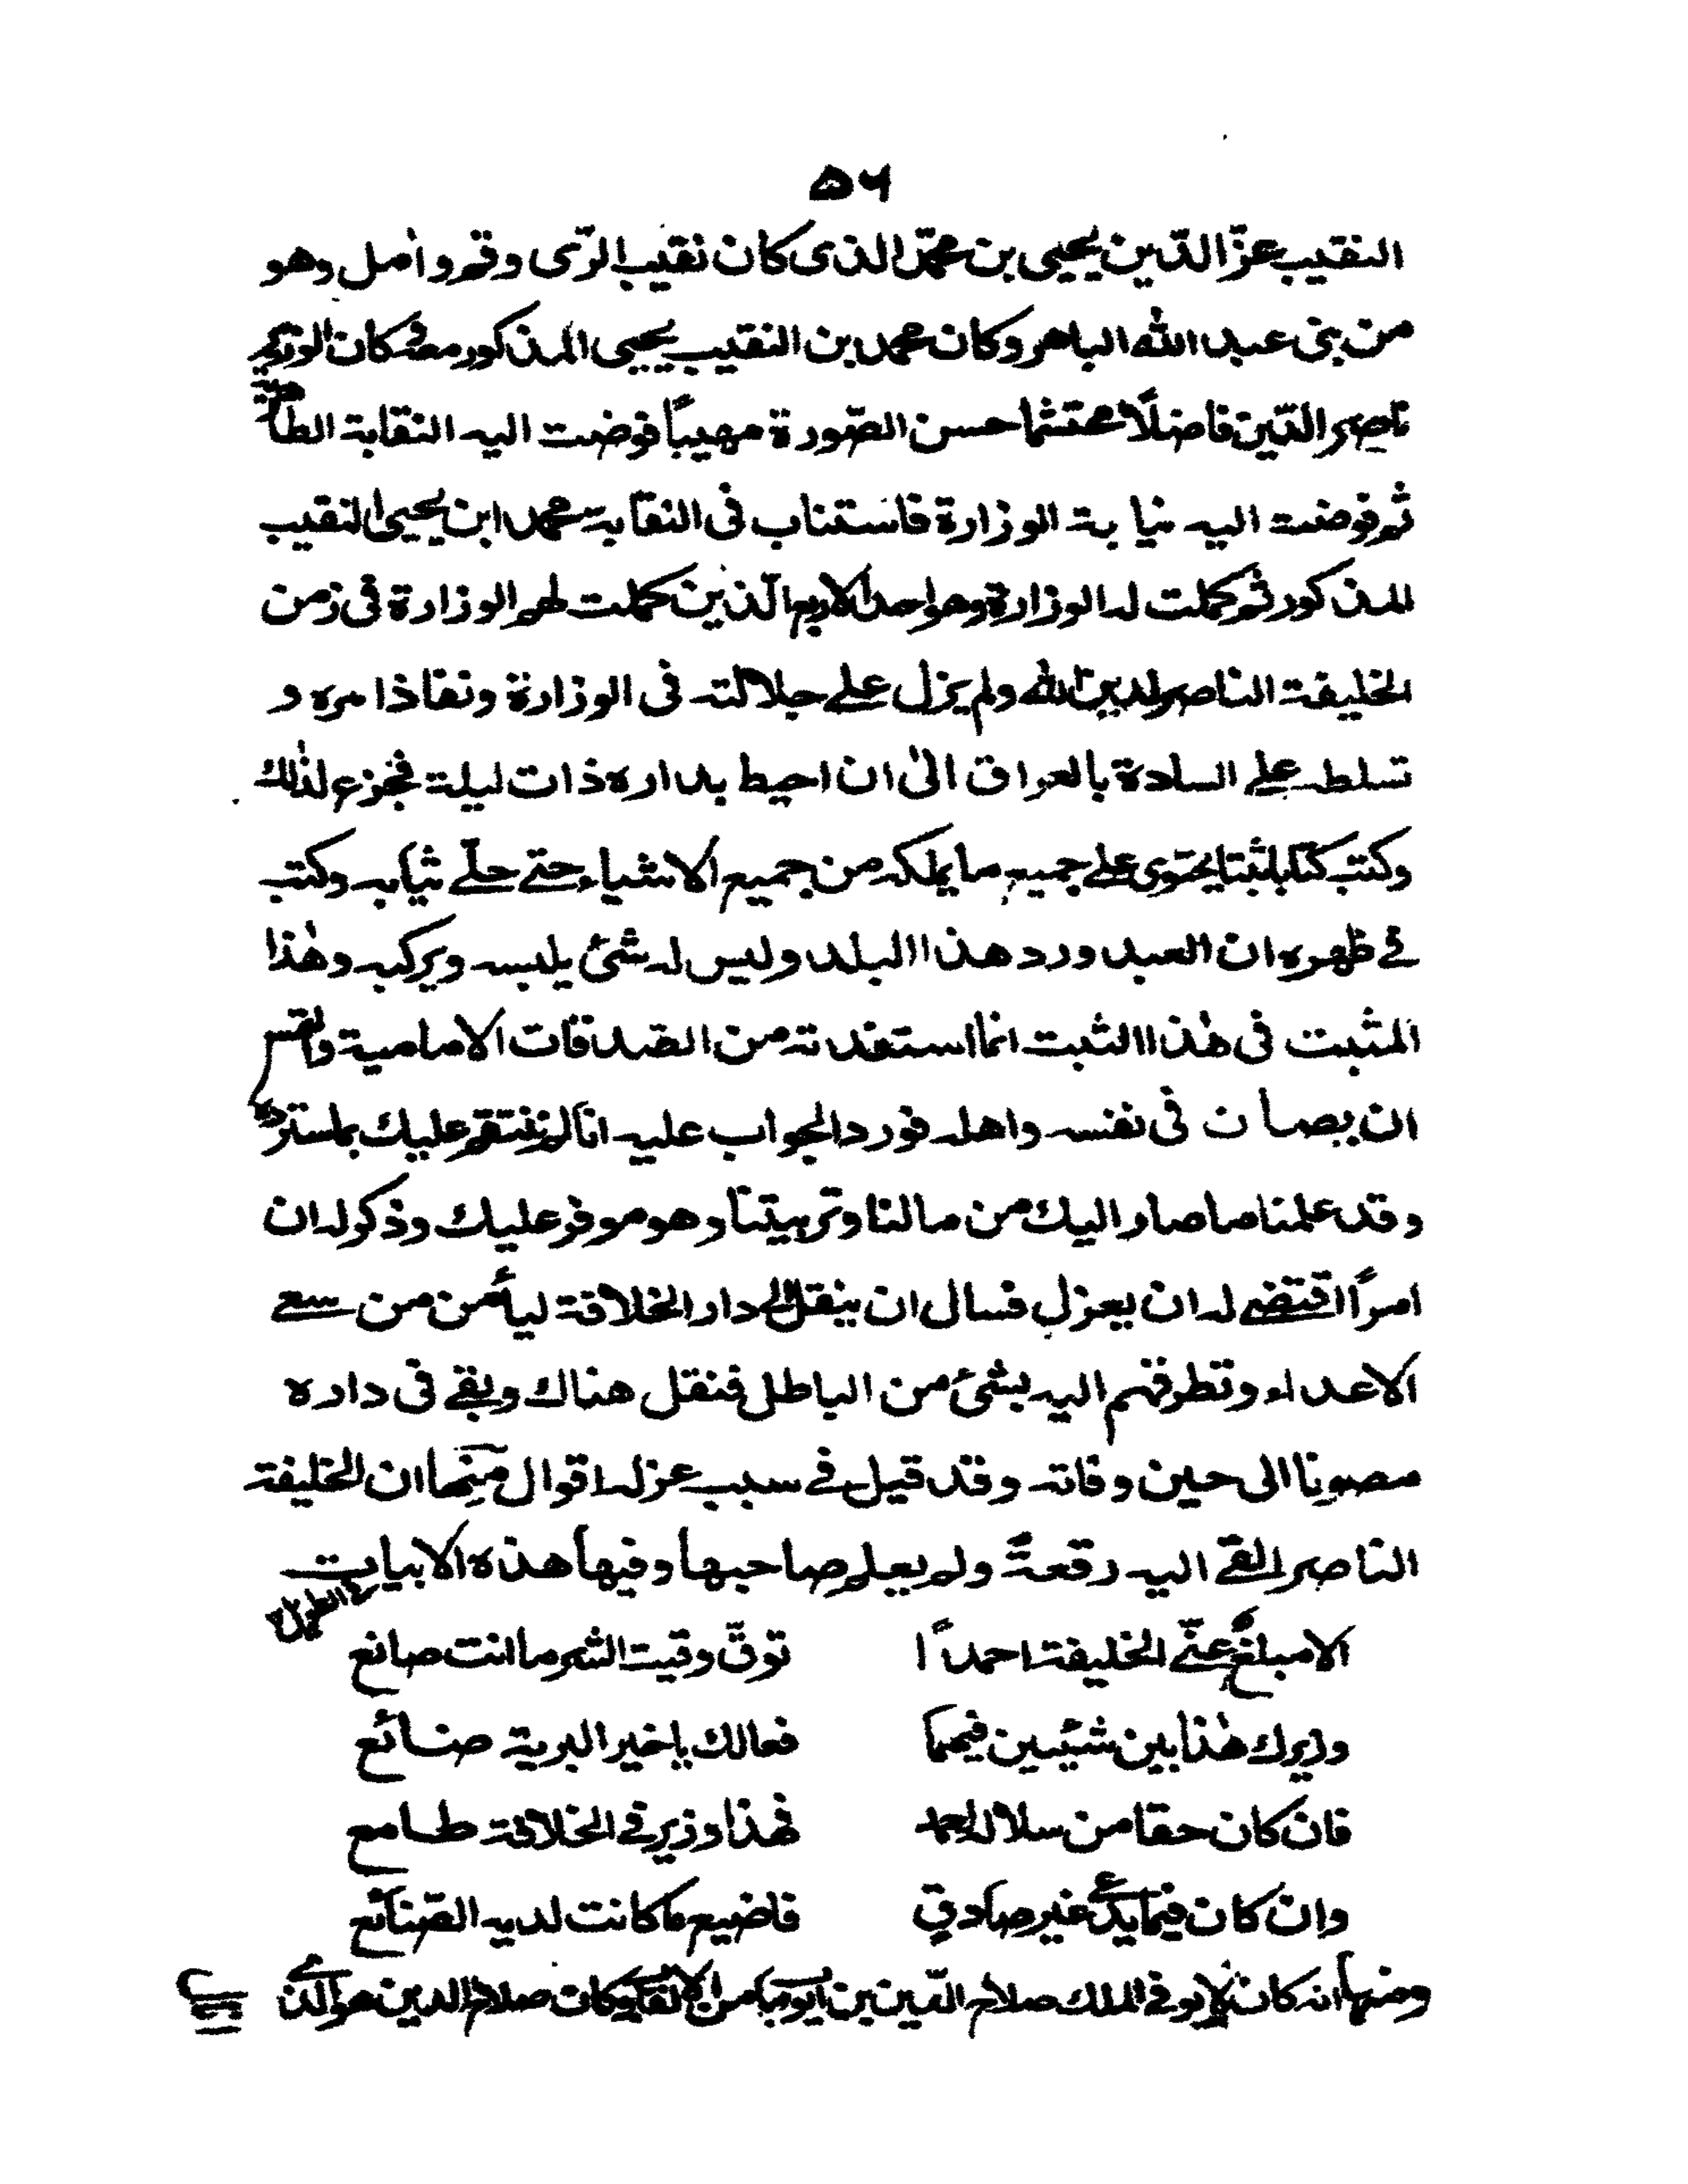 ۵۶
النقيب عزّ الدّين يحيى بن محمّد الذى كان نقيب الرّى وقم وامل وهو
من بنى عبد الله الباهر وكان محمد بن النقيب يحيى المذكور معه وكان الوزير
ناصر الدّين فاضلًا محتشما حسن الصّورة مهيبًا فوضت اليه النقابة الطاهرية
ثم فوضت اليه نيابة الوزارة فاستناب فى النقابة محمد ابن يحيى النقيب
المذكور ثم كملت له الوزارة وهو احد الاربع الّذين كملت لهم الوزارة فى زمن
الخليفة الناصر لدين الله ولم يزل على جلالته فى الوزارة ونفاذ امره و
تسلطه على السادة بالعراق الى ان احيط بداره ذات ليلة فجزع لذلك
وكتب كتابا ثبتا يحتوى على جميع ما يملكه من جميع الاشياء حتى حلّى ثيابه وكتب
فى ظهره ان العبد ورد هذا البلد وليس له شئ يلبسه ويركبه وهذا
المثبت فى هذا الثبت انما استفدته من الصّدقات الامامية والتمس
ان يصان فى نفسه واهله فورد الجواب عليه انا لم ننتقم عليك بما سترده
وقد علمنا ما صار اليك من مالنا وتربيتنا وهو موفر عليك وذكر له ان
امرًا اقتضى له ان يعزل فسال ان ينقل الى دار الخلافة ليأمن من سعى
الاعداء وتطرقهم اليه بشئ من الباطل فنقل هناك وبقى فى داره
مصونا الى حين وفاته وقد قيل فى سبب عزله اقوال منها ان الخليفة
الناصر القى اليه رقعةً ولم يعلم صاحبها وفيها هذه الابيات
من الطويل
الا مبلغٌ عنّى الخليفة احمدًا توقّ وقيت الشر ما انت صانع
وزيرك هذا بين شيئين فيهما فعالك يا خير البرية ضائع
فان كان حقا من سلالة احمد فهذا وزير فى الخلافة طامع
وان كان فيما يدعى غير صادق فاضيع ما كانت لديه الصّنائع
ومنها انه كان لا يوفى الملك صلاح الدّين بن ايوب ما من الالقاب وكان صلاح الدين هو الذى